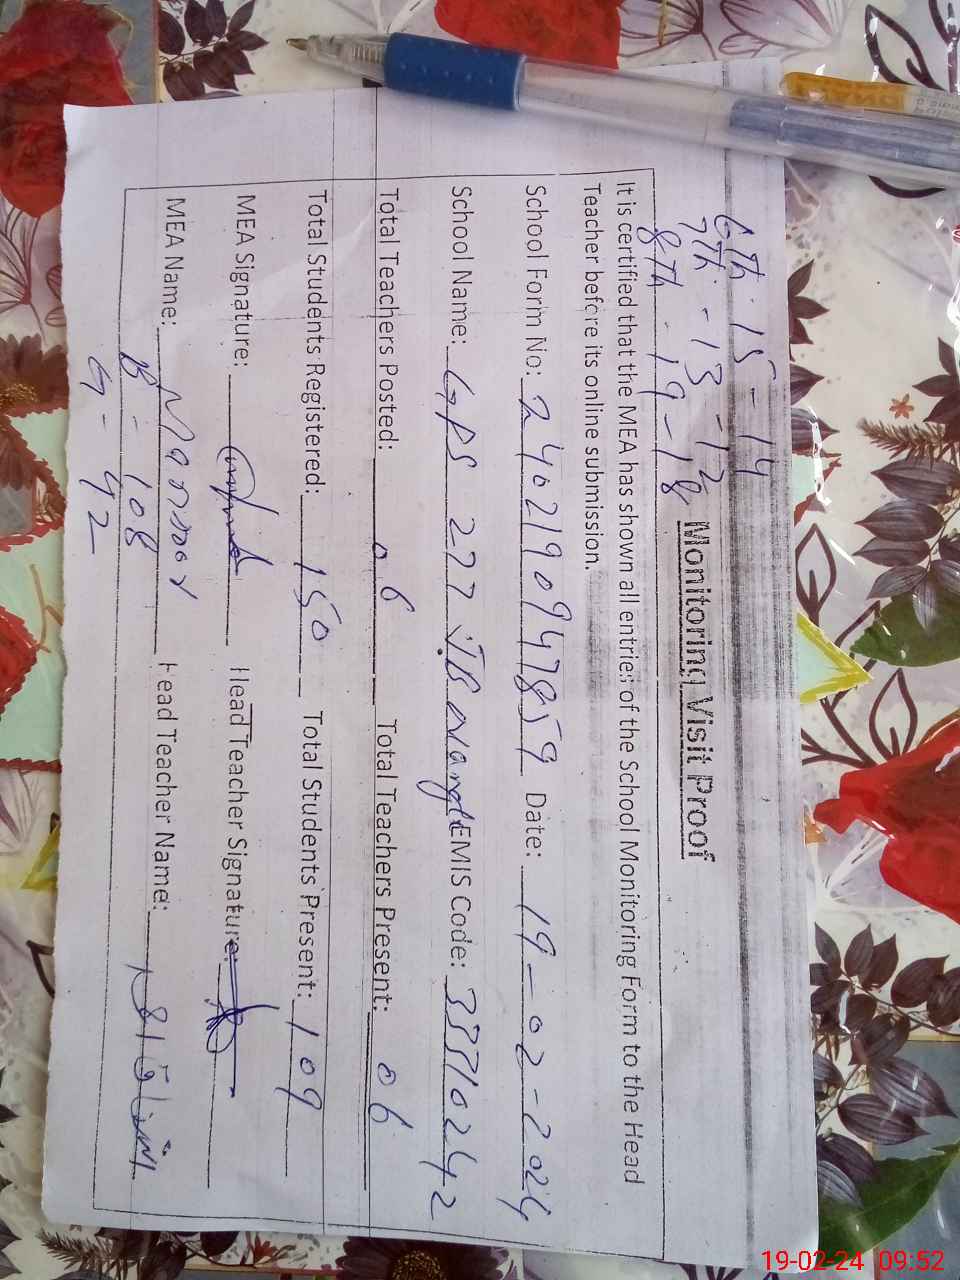 6th - 15 - 14
7th - 13 - 12
8th - 19 - 18
Monitoring Visit Proof
It is certified that the MEA has shown all entries of the School Monitoring Form to the Head
Teacher before its online submission.
School Form No: 2402190947859 Date: 19-02-2024
School Name: GPS 277 JB EMIS Code: 33310242
Total Teachers Posted: 06 Total Teachers Present: 06
Total Students Registered: 150 Total Students Present: 109
MEA Signature: Head Teacher Signature:
MEA Name: Head Teacher Name:
B - 108
G - 42
19-02-24 09:52